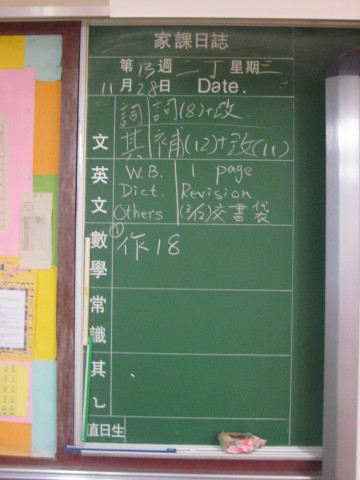 家課日誌
第13週 二丁 星期三
11月28日 Date.
文 詞 詞(8)+改
其 補(12)+改(11)
英文 W.B. 1 page
Dict. Revision
Others 交書袋
數學 ① 作18
常識
其
直日生